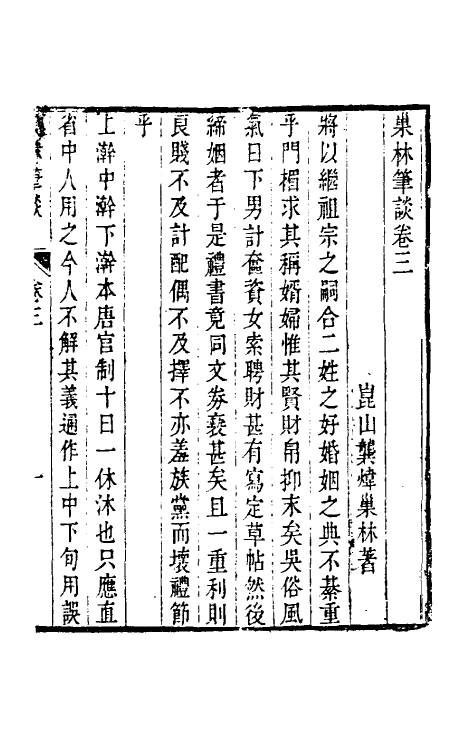 巢林筆談卷三
崑山龔煒巢林著
將以繼祖宗之嗣合二姓之好婚姻之典不綦重
乎門楣求其稱婿婦惟其賢財帛抑末矣吳俗風
氣日下男計奩資女索聘財甚有寫定草帖然後
締姻者于是禮書竟同文劵䙝甚矣且一重利則
良賤不及計配偶不及擇不亦羞族黨而壞禮節
乎
上澣中澣下澣本唐官制十日一休沐也只應直
省中人用之今人不解其義遍作上中下旬用誤
筆談
卷三
一